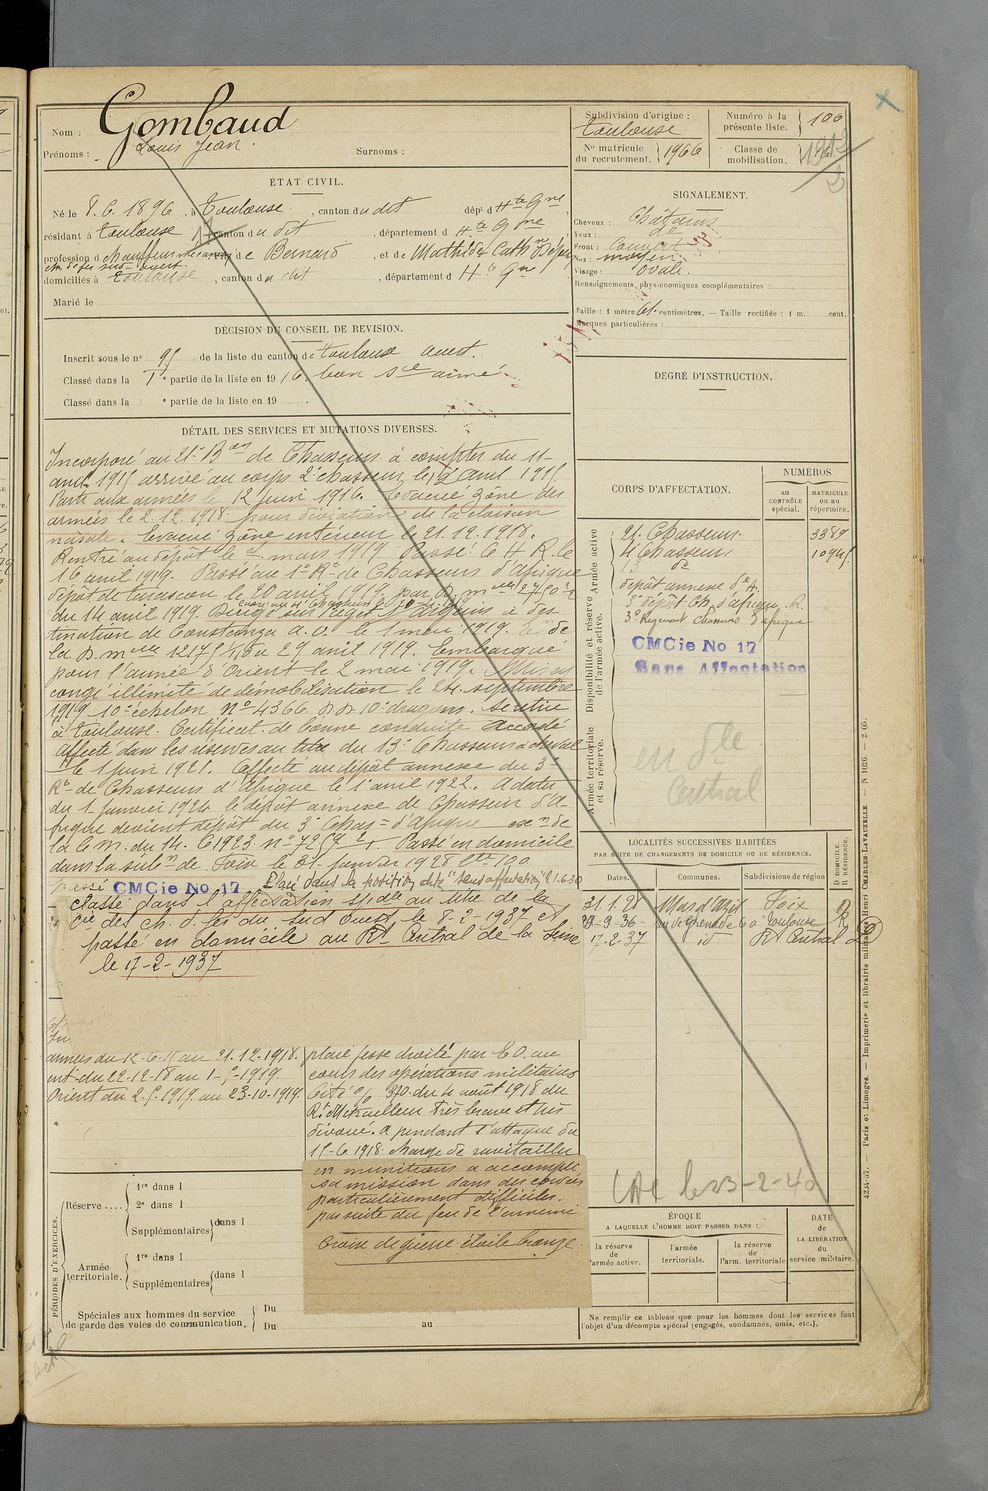 Nom : Gombaud
Prénoms : Louis Jean. Surnoms :
ÉTAT CIVIL.
Né le 8.6.1896, à Toulouse, canton du dit, dép^t d Hte Gne,
résidant à Toulouse, canton du dit, département d Hte Gne
profession d chauffeur de Bernard, et de Mathilde Cathne
ch de fer sud ouest
domiciliés à Toulouse, canton du dit, département d Hte Gne
Marié le
DÉCISION DU CONSEIL DE REVISION.
Inscrit sous le n° 95 de la liste du canton de Toulouse ouest.
Classé dans la 1re partie de la liste en 1916. bon sce armé.
Classé dans la e partie de la liste en 19 .
DÉTAIL DES SERVICES ET MUTATIONS DIVERSES.
Incorporé au 21e Bon de Chasseurs à compter du 11
avril 1915 arrivé au corps 2e chasseur le 12 avril 1915.
Parti aux armées le 12 juin 1916. Evacué zône des
armées le 2.12.1918. pour déviation de la cloison
nasale. Evacué zône intérieur le 21.12.1918.
Rentré au dépôt le mars 1919. Passé le 4 R. le
16 avril 1919. Passé au 1e Rt de Chasseurs d'Afrique
dépôt de tarascon le 20 avril 1919. par D. mlle 2750 2/1
du 14 avril 1919. Dirigé sur à des-
tination de Constanza a.o. le 1 mai 1919. de
la D. mlle 12175 du 29 avril 1919. Embarqué
pour l'armée d'Orient le 2 mai 1919. Mis en
congé illimité de démobilisation le 24 septembre
1919 10e échelon No 4366 D.D. 10e dragons. Se retire
à Toulouse. Certificat de bonne conduite accordé
Affecté dans les réserves au titre du 13e Chasseurs à cheval
le 1 juin 1921. Affecté au dépôt annexe du 3e
Rt de Chasseurs d'Afrique le 1e avril 1922. A dater
du 1 Janvier 1924 le dépôt annexe de Chasseurs d'A-
frique devient dépôt du 3e Chas= d'Afrique exon de
la C.M. du 14.6.1923 no 7257 2/1. Passé en domicile
dans la subon de Foix le 31 janvier 1928
passé CMCie No 17 Placé dans la position dite "sans affectation" le 1.6.30
Classé dans l'affectation spéciale au titre de la
Cie des ch. d. fer du Sud Ouest le 8-2-1937 et
passé en domicile au Rt Central de la Seine
le 17-2-1937
armées du 12-6-16 au 21.12-1918.
int. du 22-12-18 au 1-5-1919
Orient du 2.5.1919 au 23-10-1919
plaie fesse droite par E.O. au
cours des opérations militaires
Cité o/ 370 du 4 août 1918 du
Rt. Mitrailleur très brave et très
dévoué. A pendant l'attaque du
15-6-1918 chargé de ravitailler
en munitions a accompli
sa mission dans des conditions
particulièrement difficiles.
par suite du feu de l'ennemi
Croix de guerre étoile bronze.
PÉRIODES D'EXERCICES.
Réserve .... 1re dans l
2e dans l
Supplémentaires dans l
Armée territoriale. 1re dans l
Supplémentaires dans l
Spéciales aux hommes du service
de garde des voies de communication.
Du
Du au
Subdivision d'origine :
Toulouse
Numéro à la présente liste. 106
N° matricule du recrutement. 1966
Classe de mobilisation. 1912
SIGNALEMENT.
Cheveux : Châtains
Yeux : de
Front : couvert
Nez : moyen
Visage : ovale.
Renseignements physionomiques complémentaires :
Taille : 1 mètre 61. centimètres. — Taille rectifiée : 1 m. cent.
Marques particulières :
DEGRÉ D'INSTRUCTION.
CORPS D'AFFECTATION.
NUMEROS
au CONTRÔLE spécial.
MATRICULE ou au répertoire.
Armée active
Disponibilité et réserve de l'armée active.
Armée territoriale et sa réserve.
21. Chasseurs. 3389
4e Chasseurs 1094
13 de
dépôt annexe
3e dépôt Ch. d'afrique
3e Régiment Chasseurs d'afrique
CMCie No 17
Sans Affectation
en Dle
Central
LOCALITÉS SUCCESSIVES HABITÉES
PAR SUITE DE CHANGEMENTS DE DOMICILE OU DE RÉSIDENCE.
Dates. Communes. Subdivisions de région D. DOMICILE. R. RÉSIDENCE.
31.1.28 Mas d'Azil Foix D
29-9-36 Toulouse R
17.2.37 id Rt Central D
CAC le 23-2-40
ÉPOQUE
A LAQUELLE L'HOMME DOIT PASSER DANS :
la réserve de l'armée active.
l'armée territoriale.
la réserve de l'arm. territoriale
DATE DE LA LIBÉRATION du service militaire.
Ne remplir ce tableau que pour les hommes dont les services font
l'objet d'un décompte spécial (engagés, condamnés, omis, etc.).
4234-57. — Paris et Limoges. — Imprimerie et librairie militaires Henri CHARLES-LAVAUZELLE.